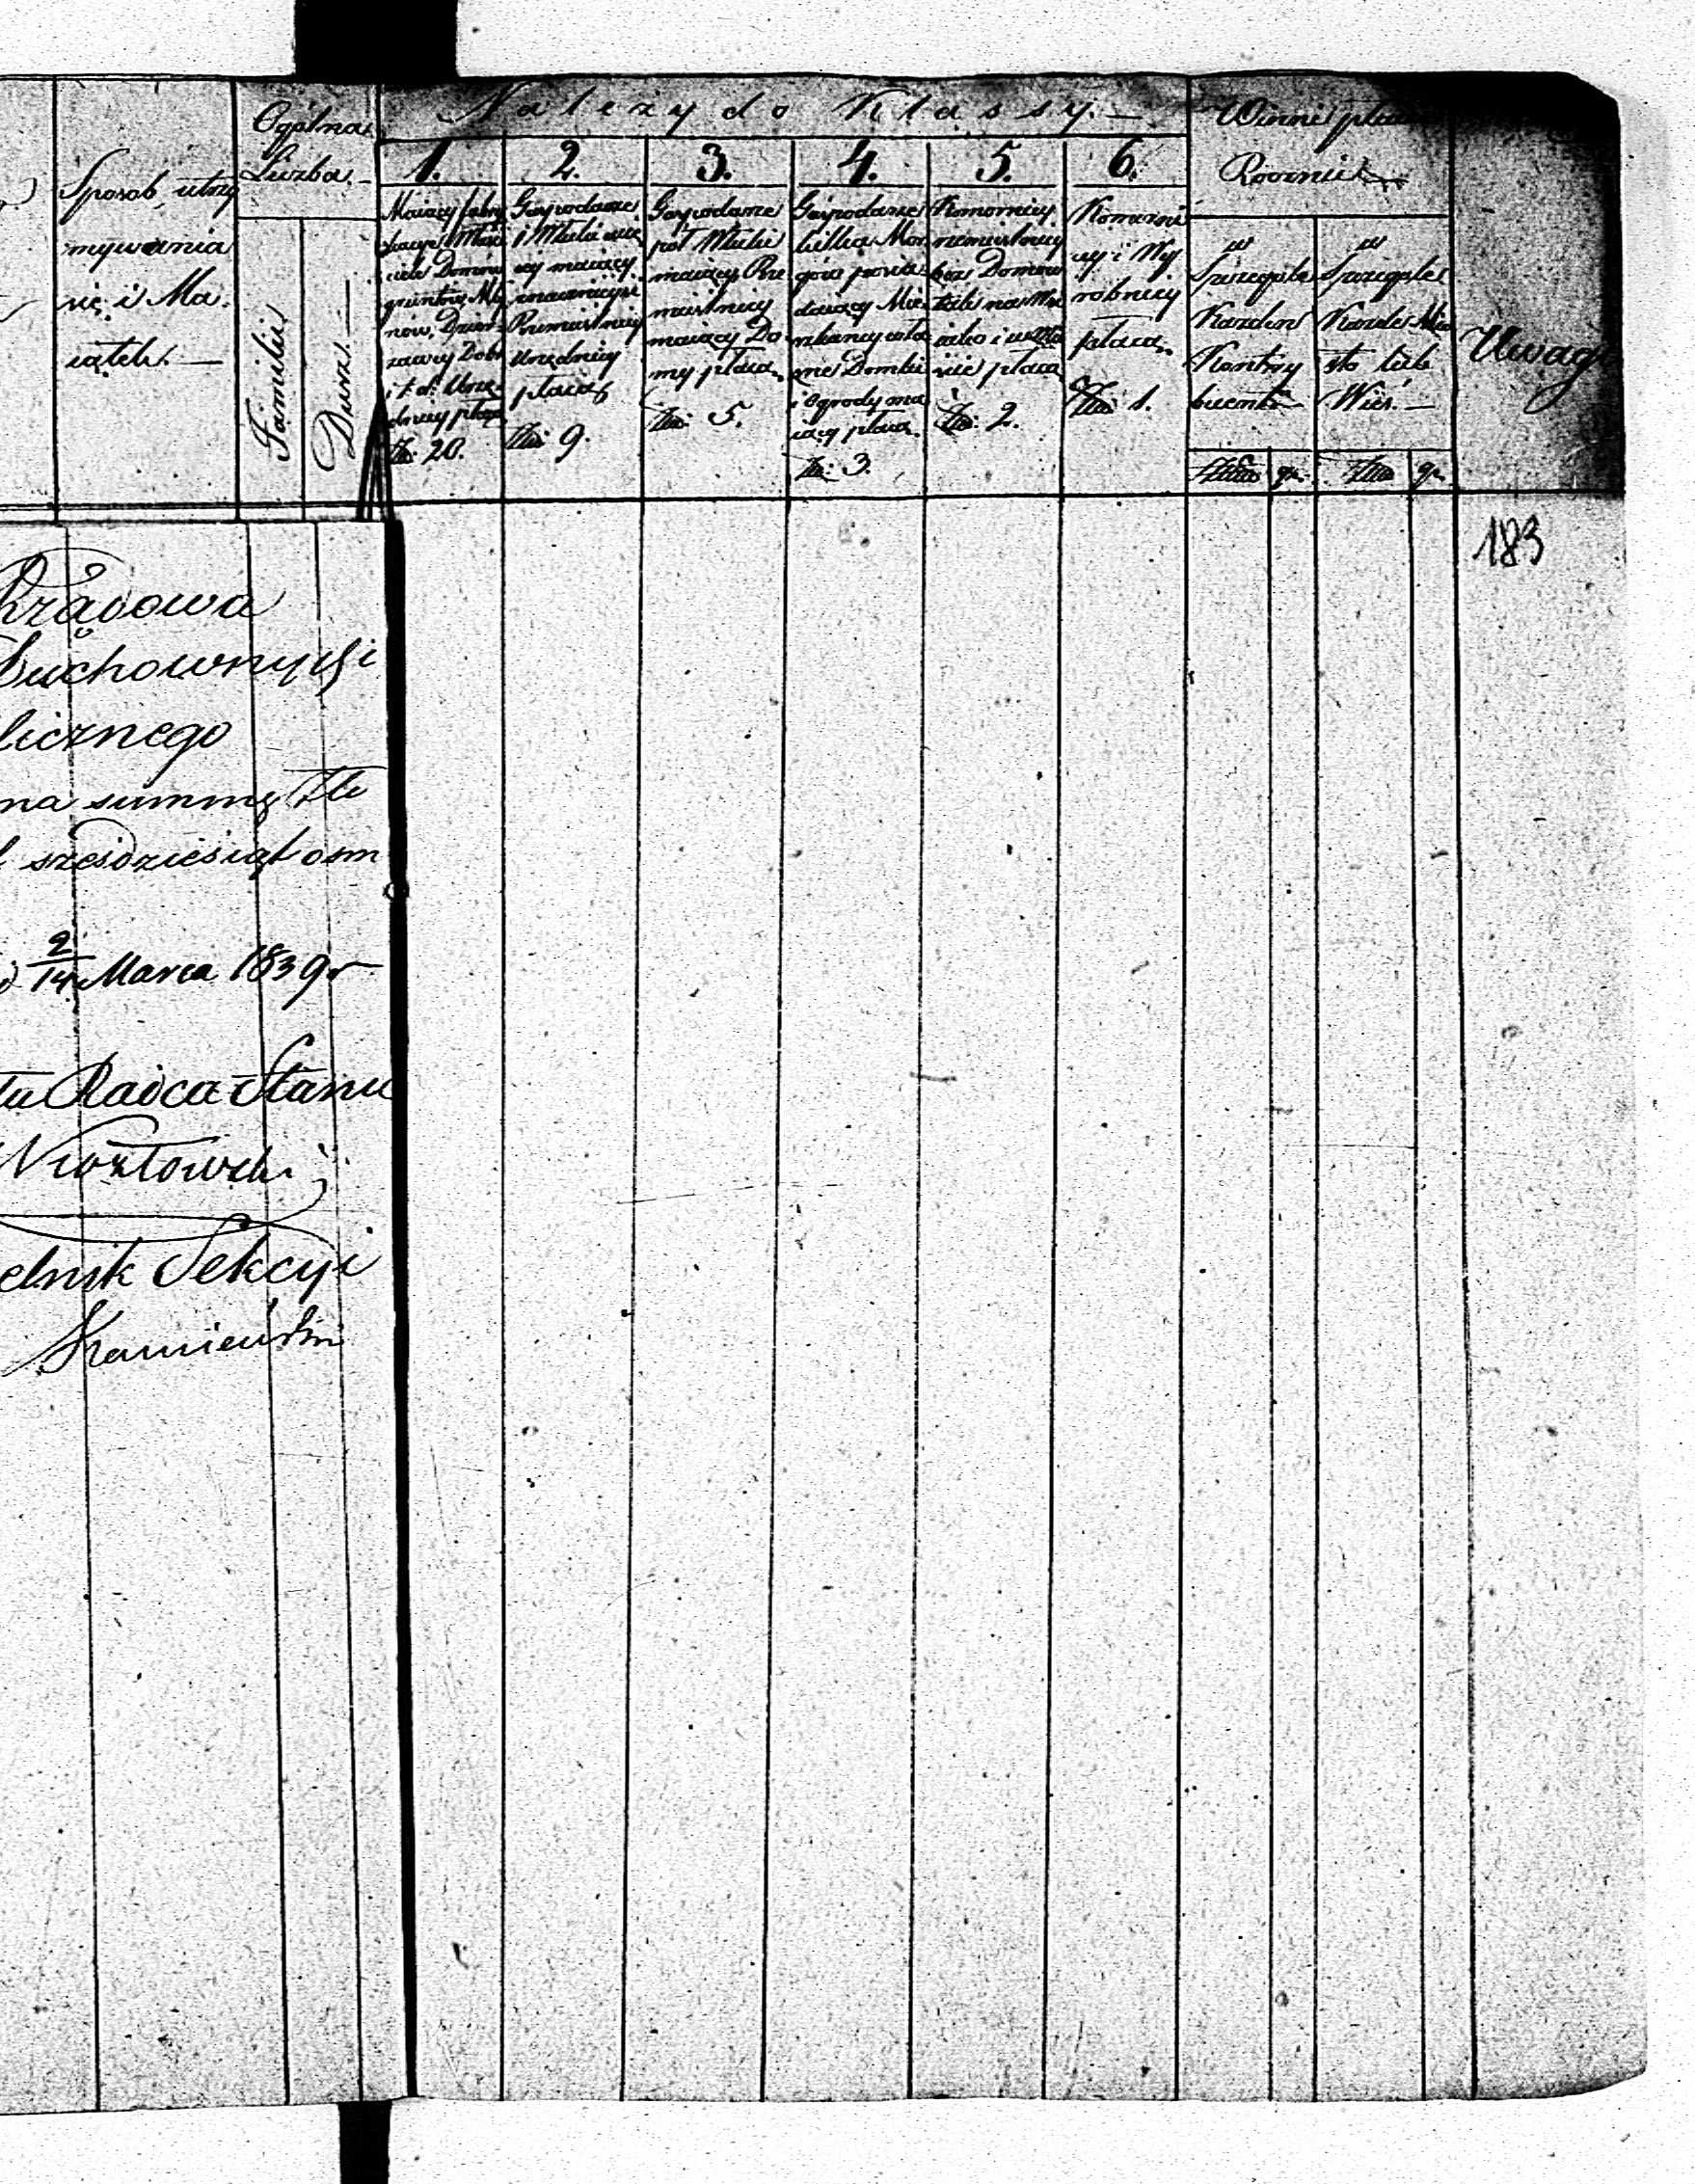 Sposób utrzy
mywania
się i Ma-
iątek.
Ogólna
Liczba.
Familii
Dusz.
Należy do Klassy.
1.
Maiący fabry
ciele Domów
gruntów, Mły
nów, Dzier-
zawcy Dobr
i t. d. Urzę-
dnicy płacą
Złł: 20.
2.
Gospodarze
maiący
znaczniejsi
Rzemieślnicy
Urzędnicy
płacą
Złł: 9.
3.
Gospodarze
pół Włuki
maiący Rze
mieślnicy
maiący Do-
my płacą
Złł: 5.
4.
Gospodarze
kilka Mor
gów posia-
daiący Mie-
szkańcy
Domki
i Ogrody ma
iący płacą.
Złł: 3.
5.
Komornicy
rzemieślnicy
bez Domów
tak na
płacą
Złł: 2.
6.
Komorni
cy i Wy
robnicy
płacą
Złł: 1.
Winni płacić
Rocznie
w
Szczególe
Każden
Kontry
buent
w
Szczególe
Każde Mia
sto lub
Wieś.
gr. gr.
Uwagi
183
Rządowa
Duchownych i
licznego
na summę Złł
sześdziesiąt osm
d 2/14 Marca 1839 r
tu Radca Stanu
elnik Sekcyi
Kamieński